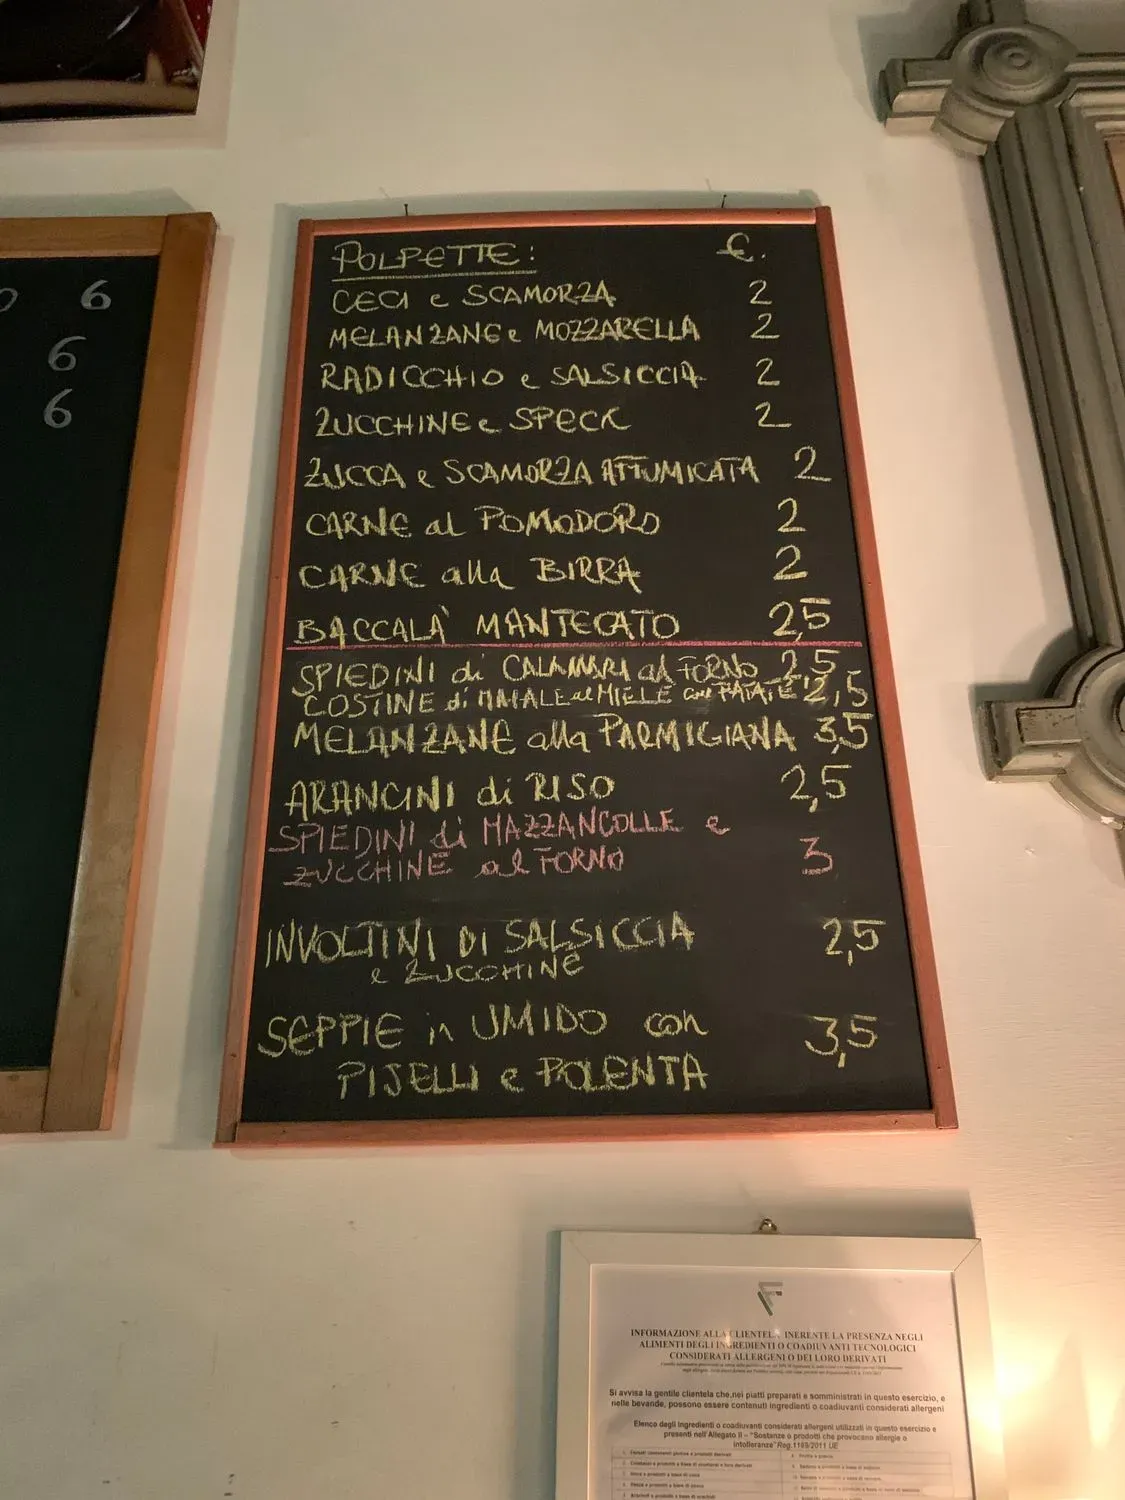 6
6
6
POLPETTE: €.
CECI e SCAMORZA 2
MELANZANE e MOZZARELLA 2
RADICCHIO e SALSICCIA 2
ZUCCHINE e SPECK 2
ZUCCA e SCAMORZA AFFUMICATA 2
CARNE al POMODORO 2
CARNE alla BIRRA 2
BACCALÀ MANTECATO 2,5
SPIEDINI di CALAMARI al FORNO 2,5
COSTINE di MAIALE al MIELE con PATATE 2,5
MELANZANE alla PARMIGIANA 3,5
ARANCINI di RISO 2,5
SPIEDINI di MAZZANCOLLE e
ZUCCHINE al FORNO 3
INVOLTINI DI SALSICCIA 2,5
e ZUCCHINE
SEPPIE in UMIDO con 3,5
PISELLI e POLENTA
INFORMAZIONE ALLA CLIENTELA INERENTE LA PRESENZA NEGLI
ALIMENTI DEGLI INGREDIENTI O COADIUVANTI TECNOLOGICI
CONSIDERATI ALLERGENI O DEI LORO DERIVATI
Si avvisa la gentile clientela che, nei piatti preparati e somministrati in questo esercizio, e
nelle bevande, possono essere contenuti ingredienti o coadiuvanti considerati allergeni
Elenco degli ingredienti o coadiuvanti considerati allergeni utilizzati in questo esercizio e
presenti nell'Allegato II – "Sostanze o prodotti che provocano allergie o
intolleranze" Reg.1169/2011 UE